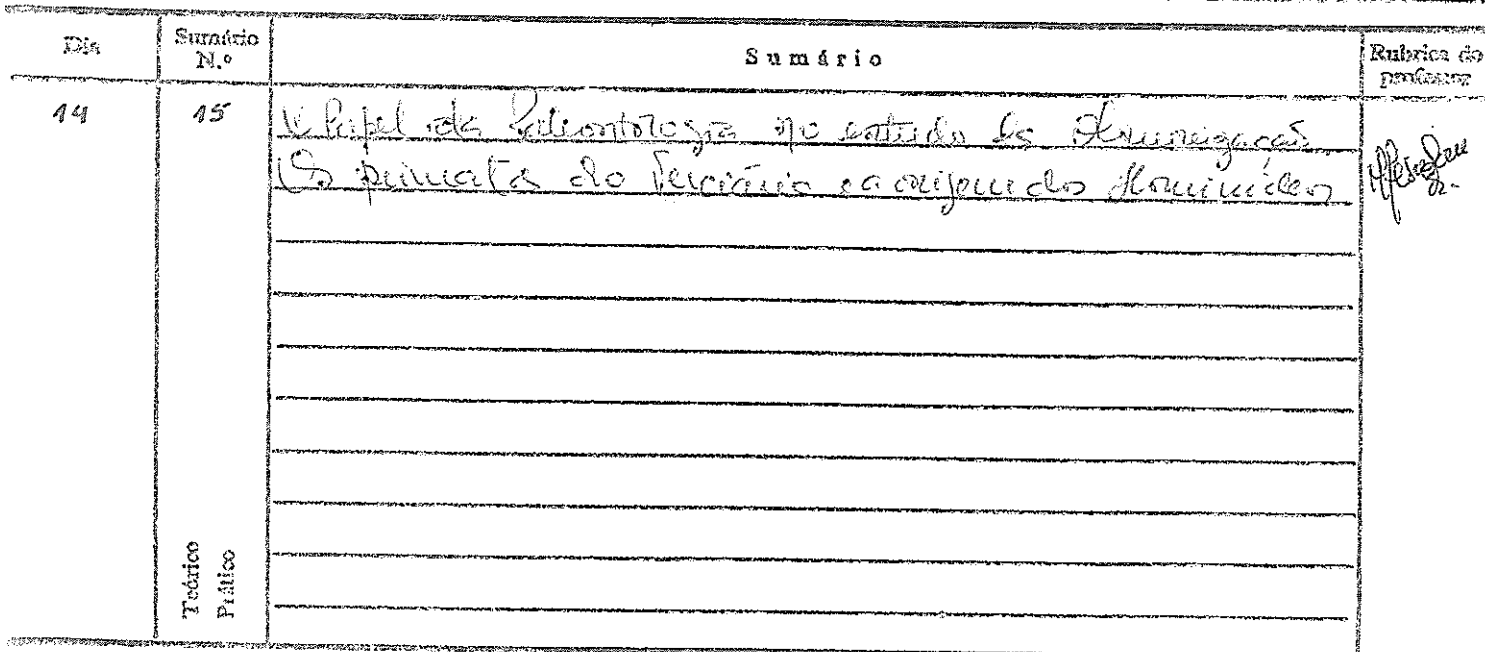 Dia
Sumário N.º
Sumário
Rubrica do professor
14
15
Papel da Paleontologia no estudo da
Os primatas do Terciário e a origem dos Hominídeos
Teórico
Prático